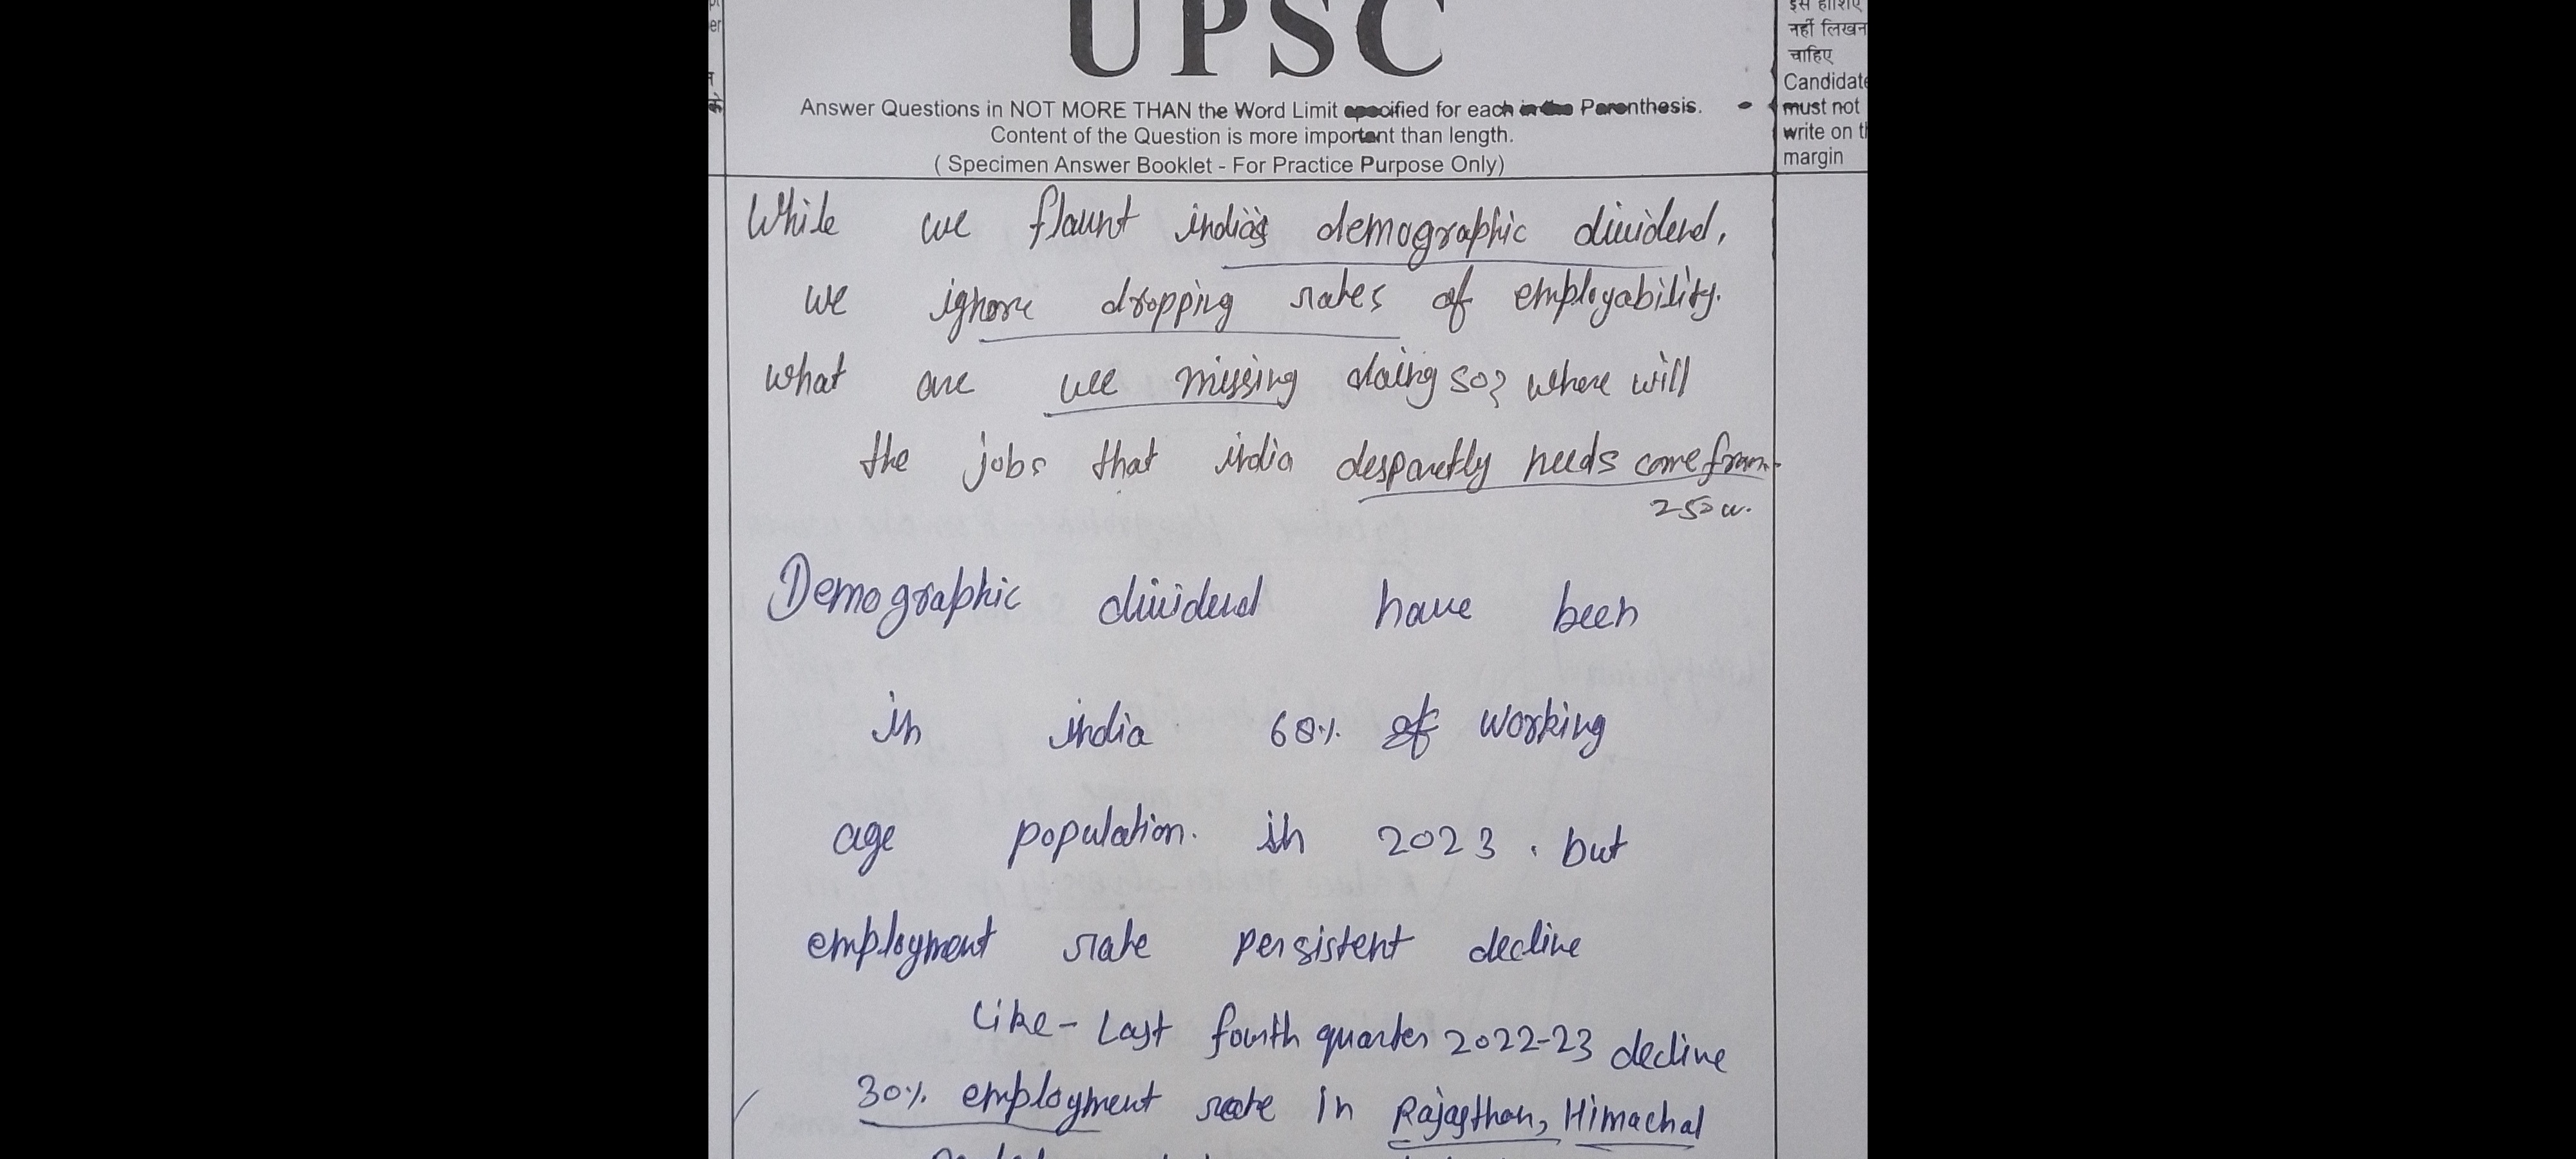 UPSC
Answer Questions in NOT MORE THAN the Word Limit specified for each in the Parenthesis.
Content of the Question is more important than length.
( Specimen Answer Booklet - For Practice Purpose Only)
नहीं लिखन
चाहिए
Candidate
must not
write on th
margin
While we flaunt india's demographic dividend,
we ignore dropping rates of employability.
what are we missing doing so? where will
the jobs that india desparetly needs come from.
250 w.
Demographic dividend have been
in india 68% of working
age population. in 2023. but
employment rate persistent decline
Like - Last fourth quarter 2022-23 decline
30% employment rate in Rajasthan, Himachal